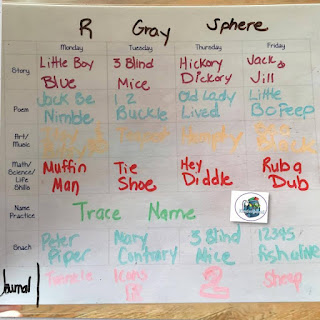 R Gray Sphere
Monday Tuesday Thursday Friday
Story Little Boy Blue 3 Blind Mice Hickory Dickory Jack & Jill
Poem Jack Be Nimble 1 2 Buckle Old Lady Lived Little Bo Peep
Art/ Music Humpty
Math/ Science/ Life Skills Muffin Man Tie Shoe Hey Diddle Rub a Dub
Name Practice Trace Name
Snack Peter Piper Mary Contrary 3 Blind Mice 12345 fish alive
Journal Twinkle Icons 2 Sheep